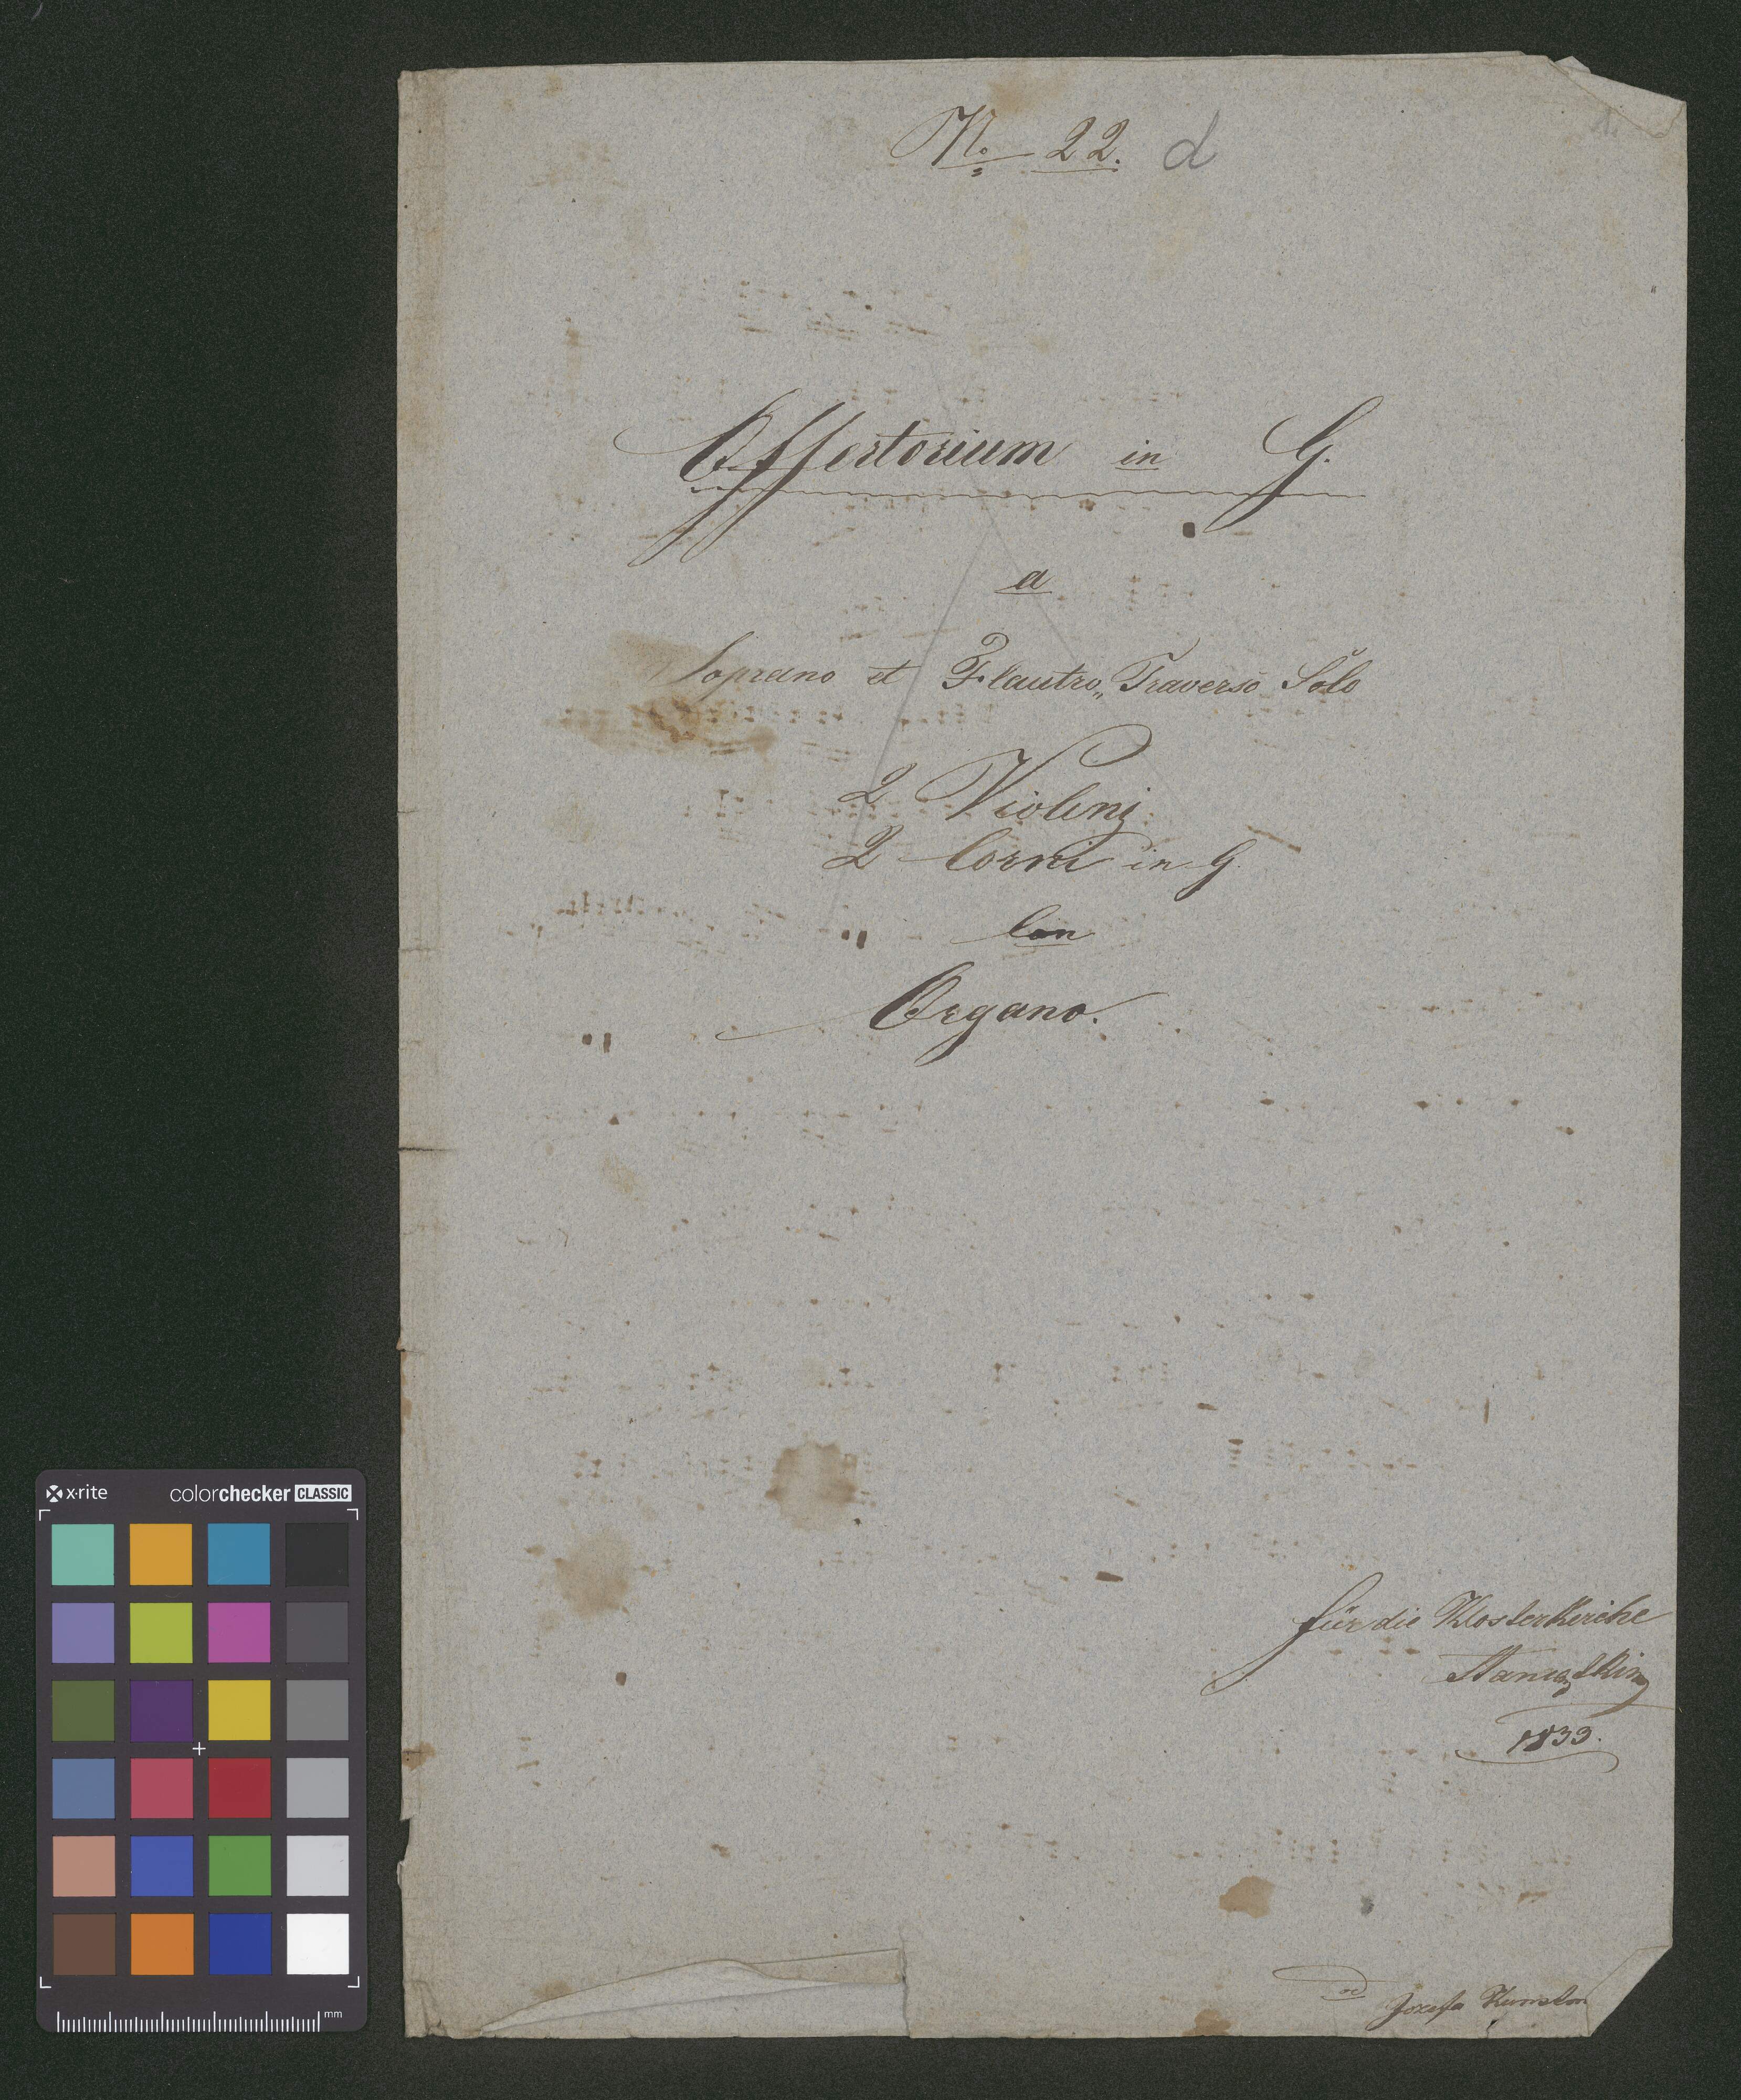 No. 22. d
Offertorium in G.
a
Soprano et Flautro„ Traverso Solo
2 Violini
2 Corni in G
Con
Organo.
für die Klosterkirche
1833.
od Jozefa
x·rite colorchecker CLASSIC
mm